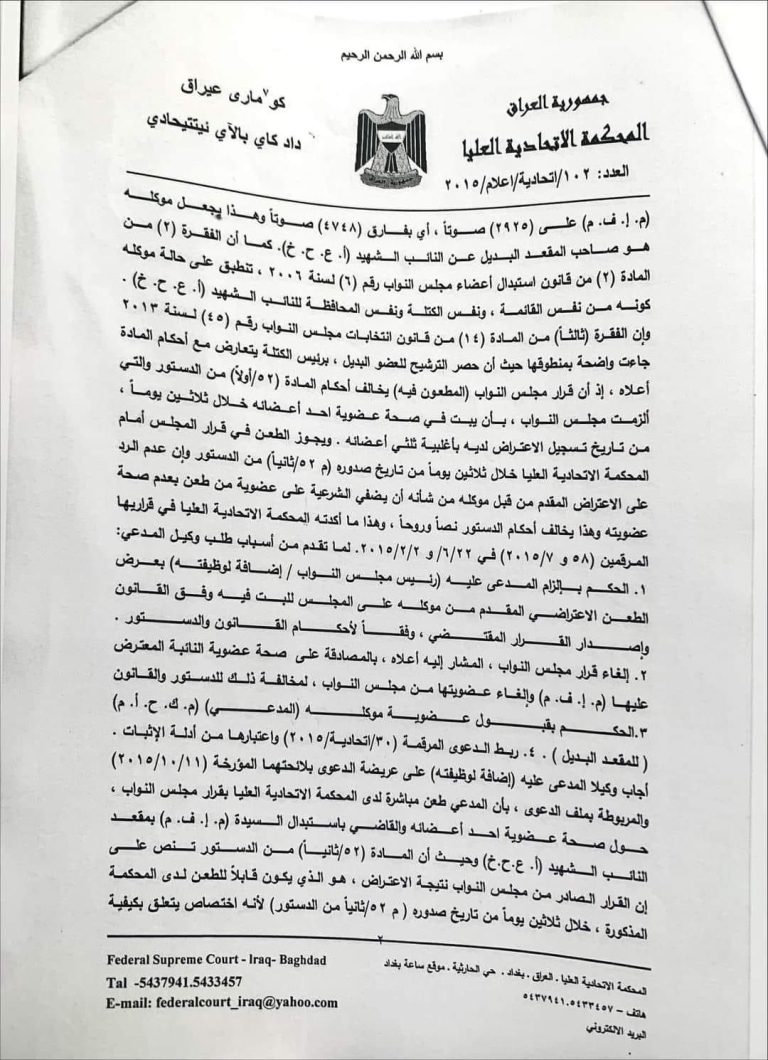 بسم الله الرحمن الرحيم
كۆمارى عيراق
داد كاي بالآي ئيتتيحادي
جمهورية العراق
المحكمة الاتحادية العليا
العدد: ١٠٢/اتحادية/اعلام/٢٠١٥
(م. إ. ف. م) على (٢٩٢٥) صوتاً ، أي بفارق (٤٧٤٨) صوتاً وهذا يجعل موكله
هو صاحب المقعد البديل عن النائب الشهيد (أ. ع. ح. خ). كما أن الفقرة (٢) من
المادة (٢) من قانون استبدال أعضاء مجلس النواب رقم (٦) لسنة ٢٠٠٦ ، تنطبق على حالة موكله
كونه من نفس القائمة ، ونفس الكتلة ونفس المحافظة للنائب الشهيد (أ. ع. ح. خ) .
وإن الفقرة (ثالثاً) من المادة (١٤) من قانون انتخابات مجلس النواب رقم (٤٥) لسنة ٢٠١٣
جاءت واضحة بمنطوقها حيث أن حصر الترشيح للعضو البديل ، برئيس الكتلة يتعارض مع أحكام المادة
أعلاه ، إذ أن قرار مجلس النواب (المطعون فيه) يخالف أحكام المادة (٥٢/أولاً) من الدستور والتي
ألزمت مجلس النواب ، بأن يبت في صحة عضوية احد أعضائه خلال ثلاثين يوماً ،
من تاريخ تسجيل الاعتراض لديه بأغلبية ثلثي أعضائه . ويجوز الطعن في قرار المجلس أمام
المحكمة الاتحادية العليا خلال ثلاثين يوماً من تاريخ صدوره (م ٥٢/ثانياً) من الدستور وإن عدم الرد
على الاعتراض المقدم من قبل موكله من شأنه أن يضفي الشرعية على عضوية من طعن بعدم صحة
عضويته وهذا يخالف أحكام الدستور نصاً وروحاً ، وهذا ما أكدته المحكمة الاتحادية العليا في قراريها
المرقمين (٥٨ و ٢٠١٥/٧) في ٦/٢٢/ و ٢٠١٥/٢/٢. لما تقدم من أسباب طلب وكيل المدعي:
١. الحكم بإلزام المدعى عليه (رئيس مجلس النواب / إضافة لوظيفته) بعرض
الطعن الاعتراضي المقدم من موكله على المجلس للبت فيه وفق القانون
وإصدار القرار المقتضي ، وفقاً لأحكام القانون والدستور .
٢. إلغاء قرار مجلس النواب ، المشار إليه أعلاه ، بالمصادقة على صحة عضوية النائبة المعترض
عليها (م. إ. ف. م) وإلغاء عضويتها من مجلس النواب ، لمخالفة ذلك للدستور والقانون
٣.الحكم بقبول عضوية موكله (المدعي) (م. ك. ح. أ. م)
( للمقعد البديل ) . ٤. ربط الدعوى المرقمة (٣٠/اتحادية/٢٠١٥) واعتبارها من أدلة الإثبات .
أجاب وكيلا المدعى عليه (إضافة لوظيفته) على عريضة الدعوى بلائحتهما المؤرخة (٢٠١٥/١٠/١١)
والمربوطة بملف الدعوى ، بأن المدعي طعن مباشرة لدى المحكمة الاتحادية العليا بقرار مجلس النواب ،
حول صحة عضوية احد أعضائه والقاضي باستبدال السيدة (م. إ. ف. م) بمقعد
النائب الشهيد (أ. ع.ح.خ) وحيث أن المادة (٥٢/ثانياً) من الدستور تنص على
إن القرار الصادر من مجلس النواب نتيجة الاعتراض ، هو الذي يكون قابلاً للطعن لدى المحكمة
المذكورة ، خلال ثلاثين يوماً من تاريخ صدوره ( م ٥٢/ثانياً من الدستور) لأنه اختصاص يتعلق بكيفية
٢
Federal Supreme Court - Iraq- Baghdad
Tal -5437941.5433457
E-mail: federalcourt_iraq@yahoo.com
المحكمة الاتحادية العليا . العراق . بغداد . حي الحارثية . موقع ساعة بغداد
هاتف – ٥٤٣٧٩٤١.٥٤٣٣٤٥٧
البريد الالكتروني